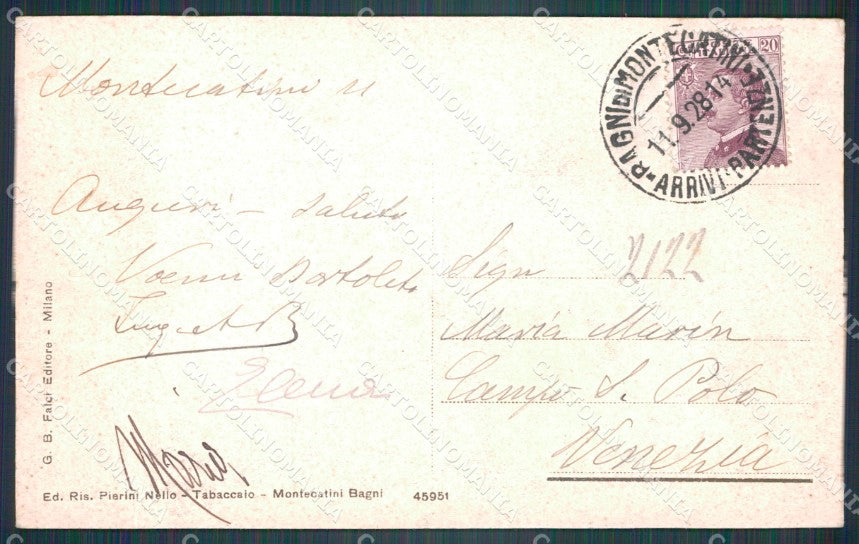 BAGNI DI MONTECATINI
11.9.28-14
ARRIVI-PARTENZE
20
Montecatini 11
Auguri - saluti
Bortoleto
Elena
Mario
Sign 2122
Maria Marin
Campo S. Polo
Venezia
G. B. Falci Editore - Milano
Ed. Ris. Pierini Nello - Tabaccaio - Montecatini Bagni 45951
CARTOLINOMANIA